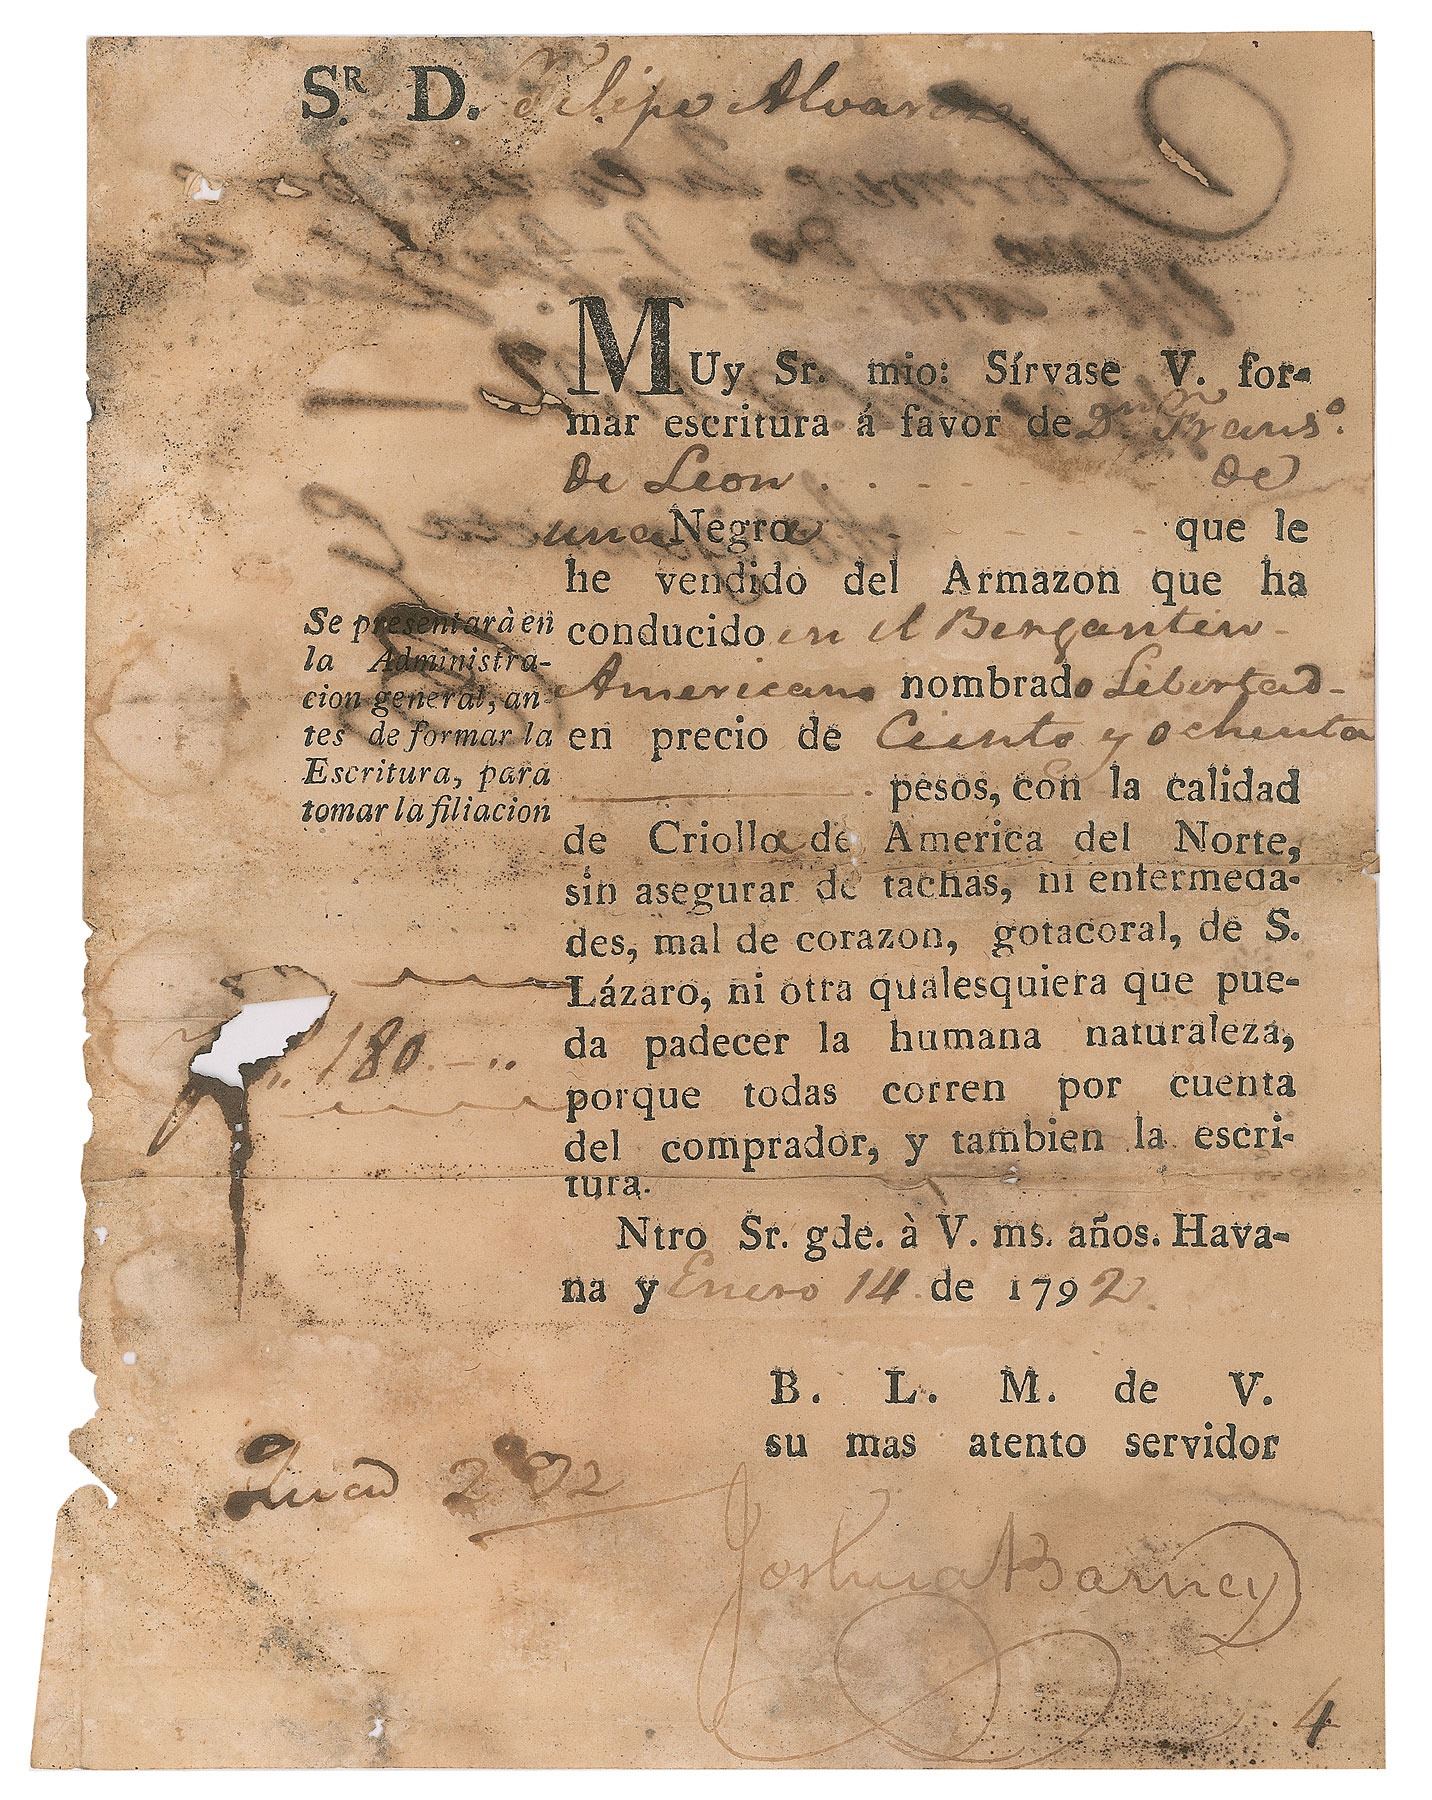 Sr. D. Felipe Alvarez.
MUy Sr. mio: Sírvase V. for-
mar escritura á favor de Dn. Frans.º
de Leon . . . de
una Negra que le
he vendido del Armazon que ha
conducido en el Bergantin
Americano nombrado Libertad
en precio de Ciento y ochenta
pesos, con la calidad
de Criolla de America del Norte,
sin asegurar de tachas, ni enfermeda-
des, mal de corazon, gotacoral, de S.
Lázaro, ni otra qualesquiera que pue-
da padecer la humana naturaleza,
porque todas corren por cuenta
del comprador, y tambien la escri-
tura.
Ntro Sr. gde. à V. ms. años. Hava-
na y Enero 14 de 1792.
B. L. M. de V.
su mas atento servidor
Joshua Barney
Se presentarà en
la Administra-
cion general, an-
tes de formar la
Escritura, para
tomar la filiacion
180
4